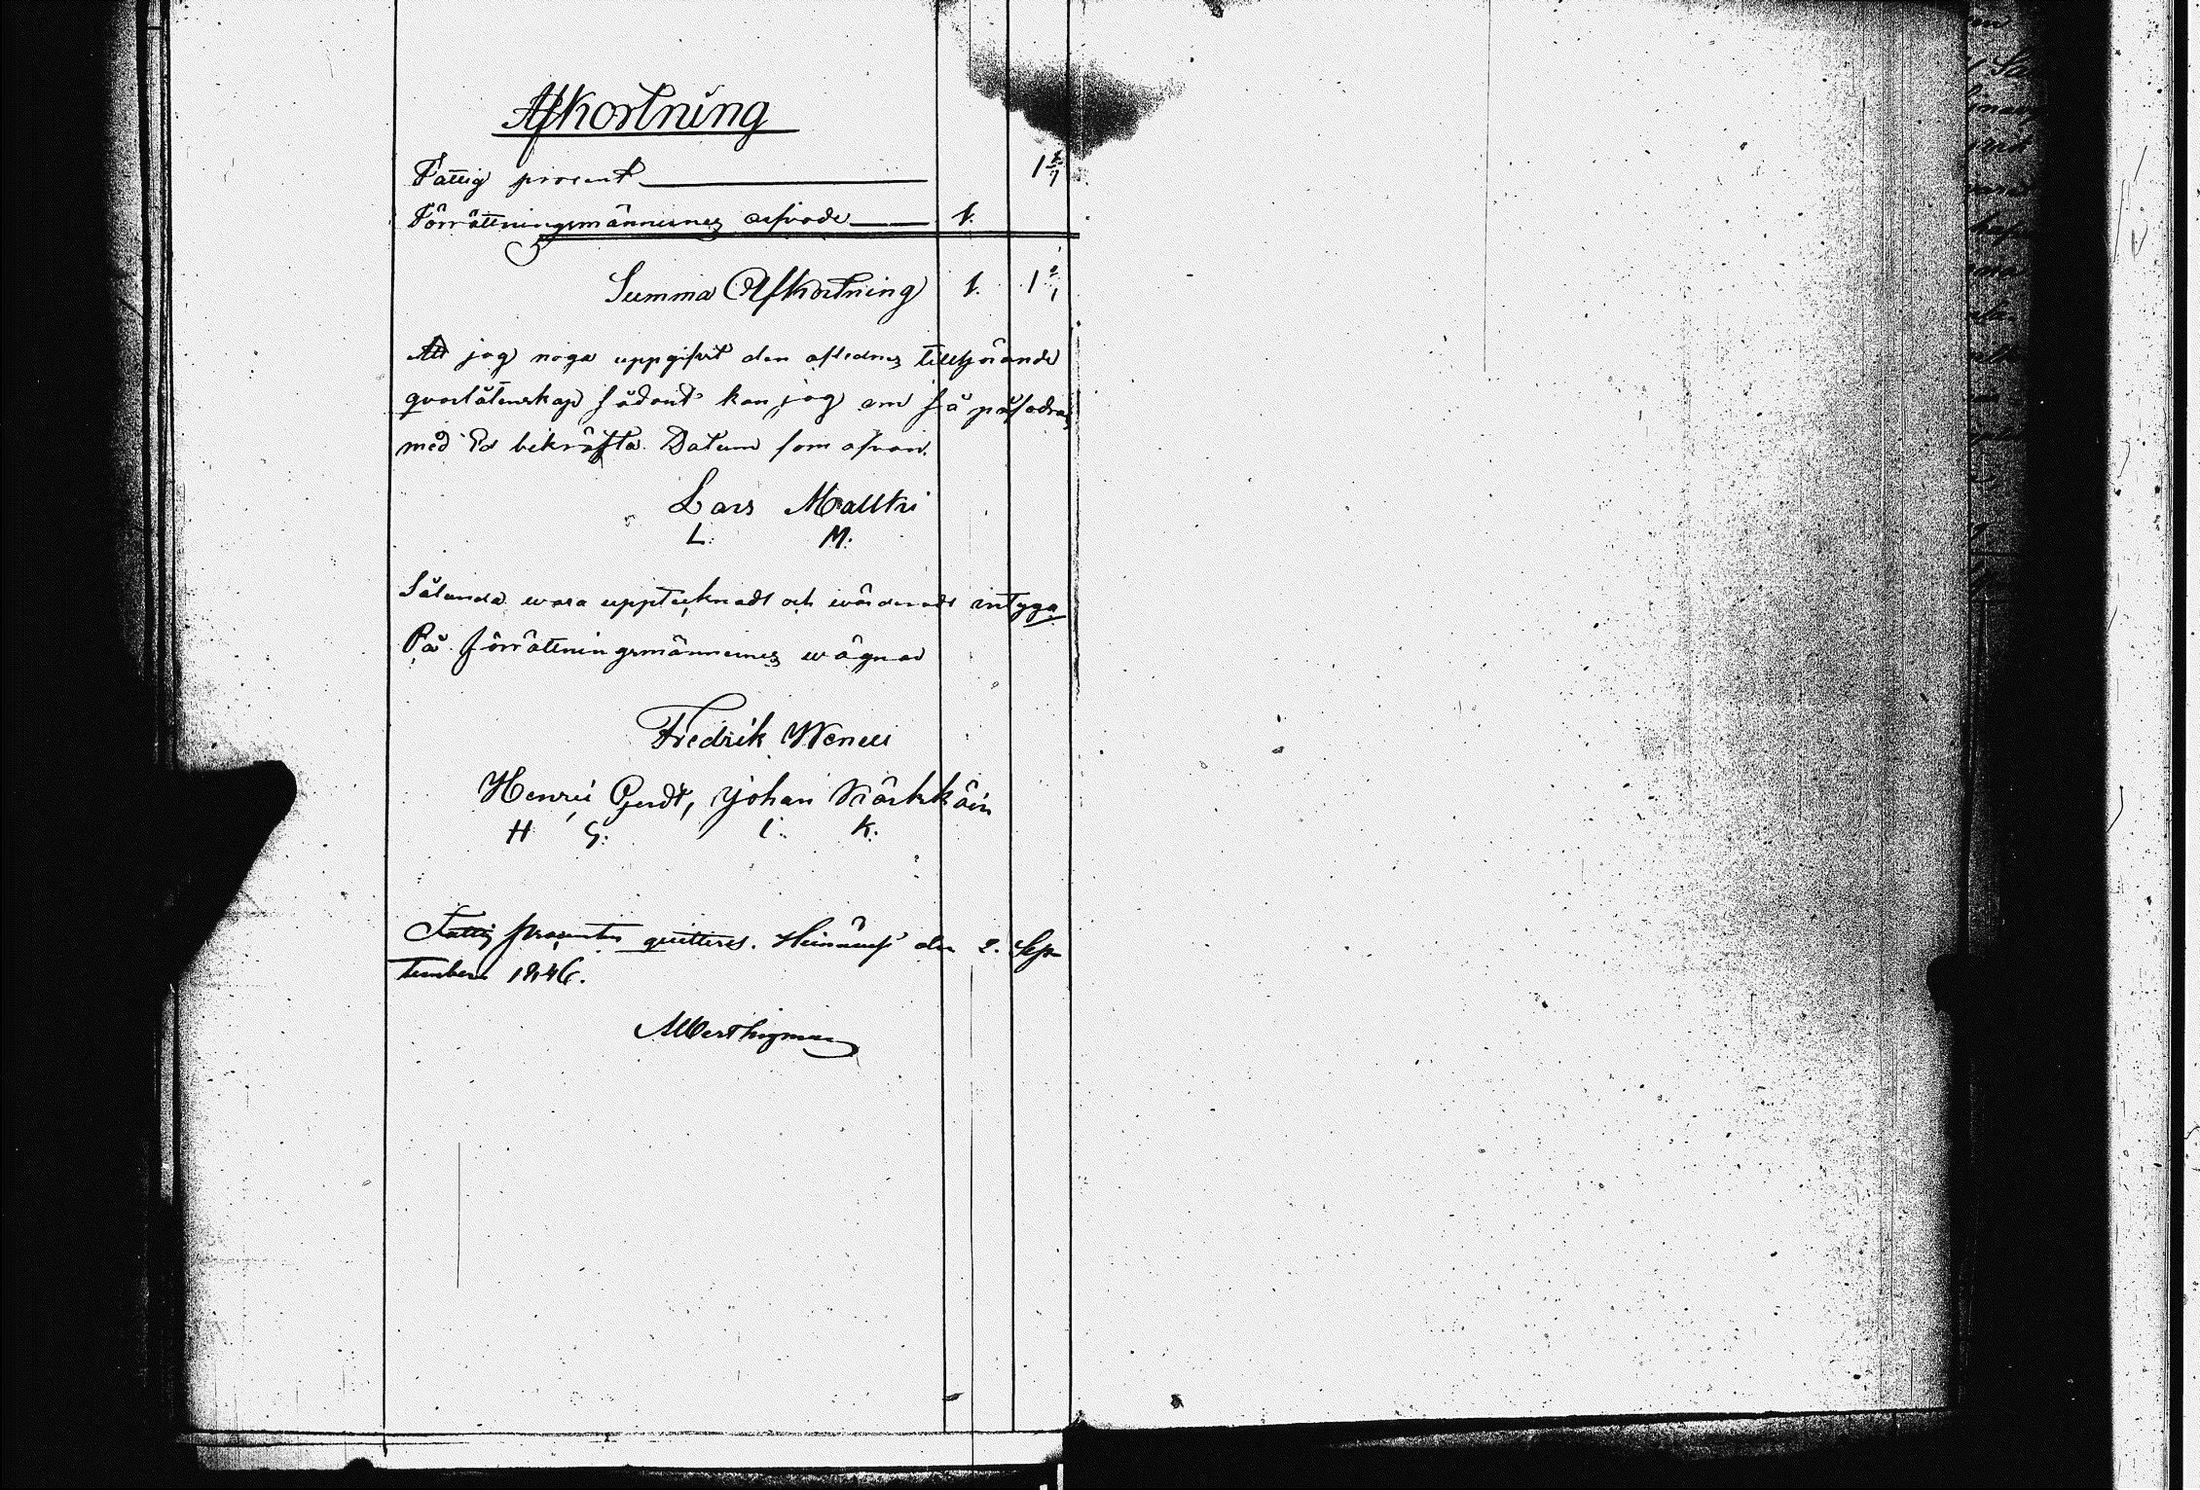 Afkortning
Fattig procent 1 2/7
Förrättningsmännernes arfvode 1.
Summa Afkortning 1. 1 2/7
Att jag noga uppgifvit den aflednes tillhörande
qvarlåtenskap sådant kan jag om så påfodras
med Ed bekräfta. Datum som ofvan.
Lars Maltki
L. M.
Sålunda wara upptecknadt och wärderadt intyga
På förrättningsmännernes wägnar
Fredrik
Henric Gerdt, Johan Kärkkäin
H G: I: K:
Fattig procenten quitteras. den 2. Sep
tember 1846.